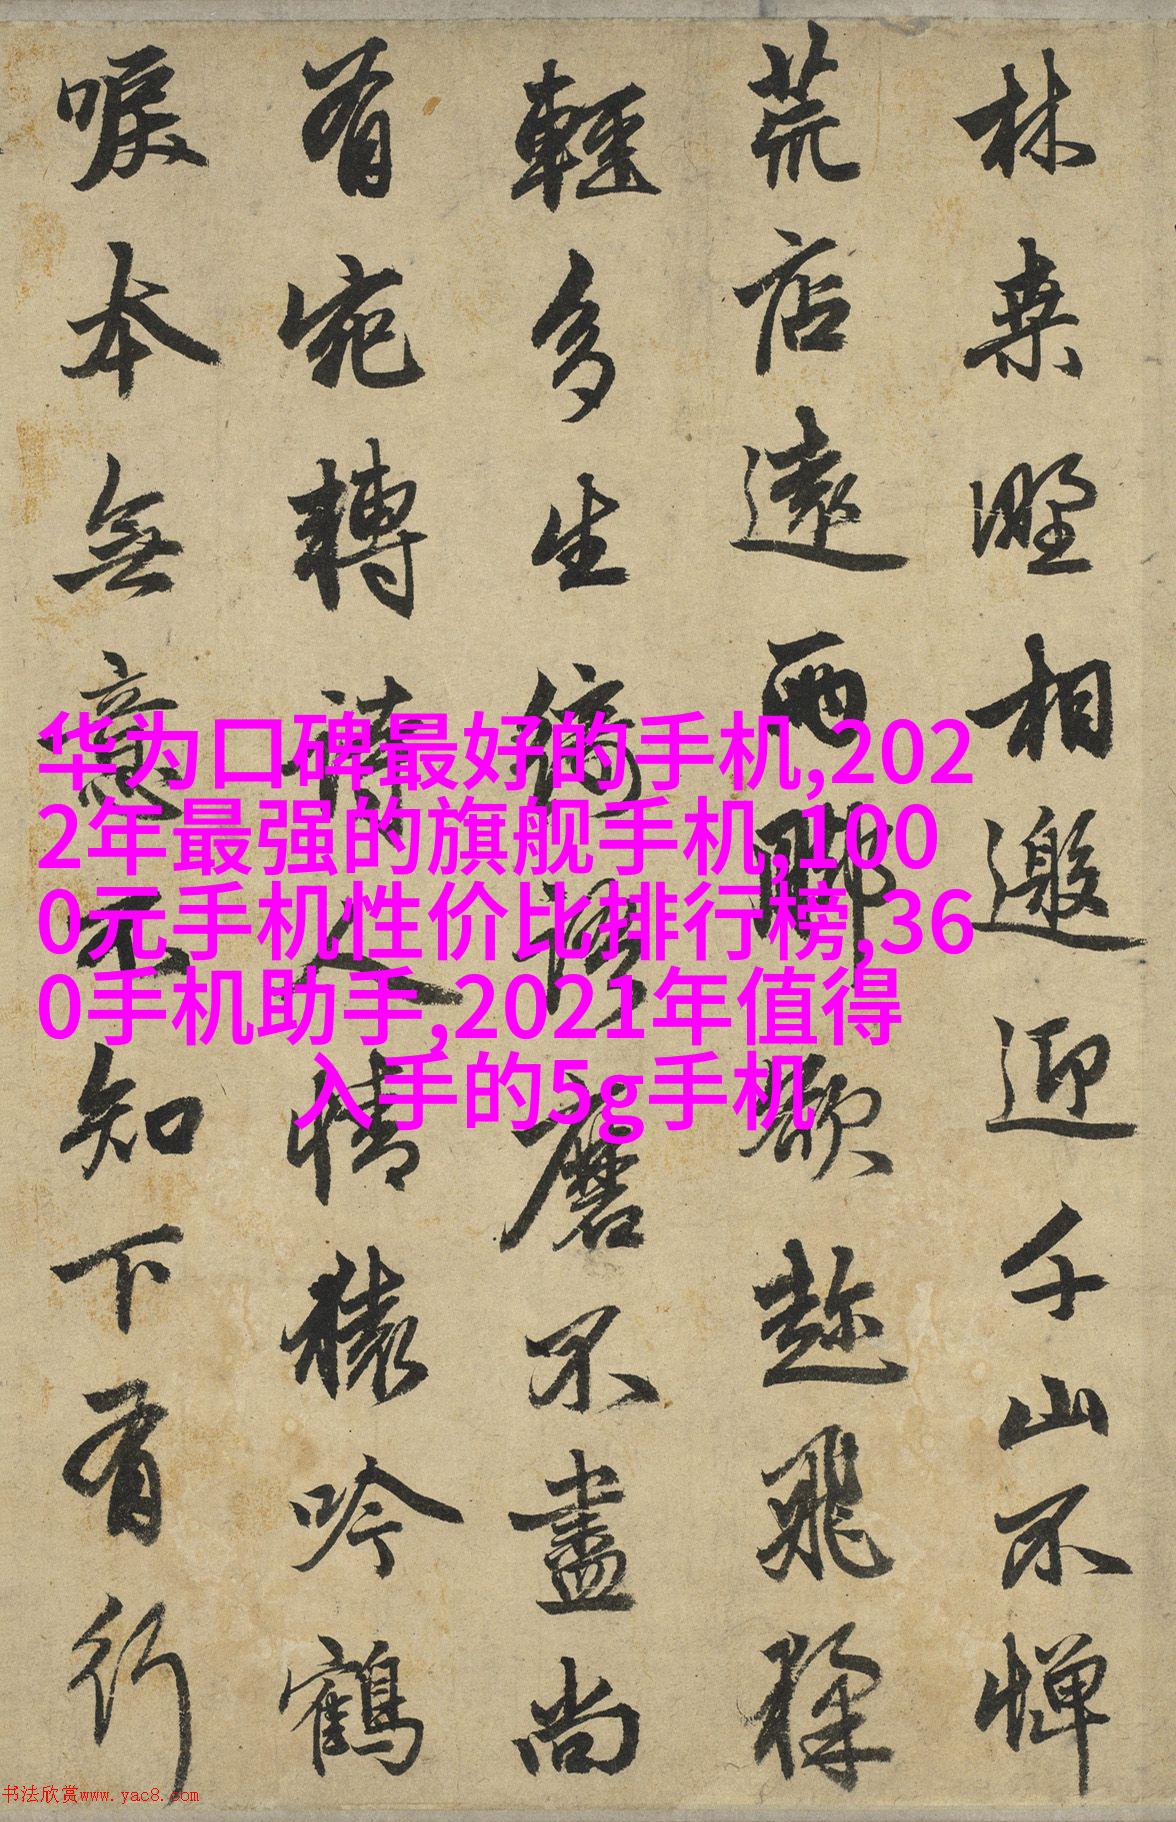 林桒野相邀迎千山不惮
荒店遠兩脚欲趁飛猱
輕多生綺語磨不盡尚
有宛轉詩人情猿吟鶴
唳本無意不知下有行
华为口碑最好的手机,202
2年最强的旗舰手机,100
0元手机性价比排行榜,36
0手机助手,2021年值得
入手的5g手机
书法欣赏www.yac8.com